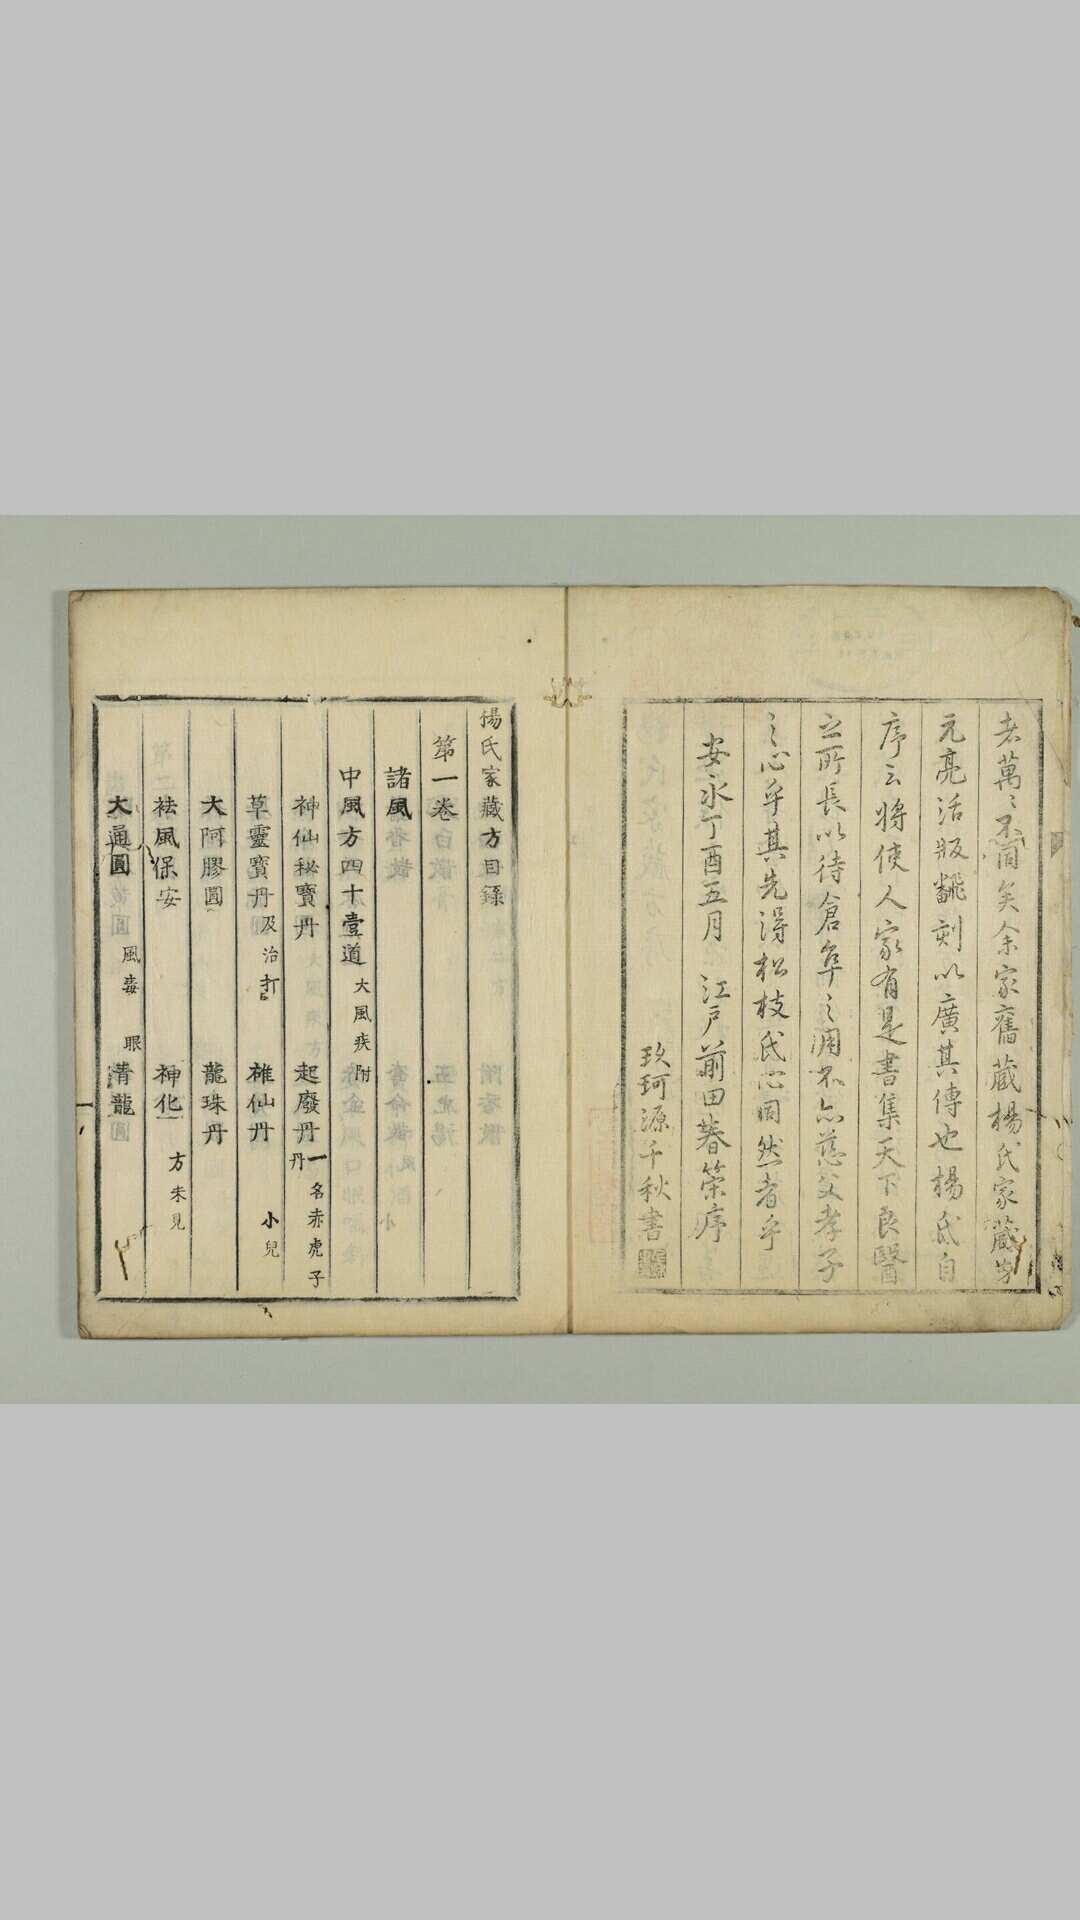 者萬〻不同矣余家舊蔵楊氏家蔵方
元亮活版翻刻以廣其傳也楊氏自
序云將使人家有是書集天下良醫
之所長以待倉卒之用不亦慈父孝子
之心乎其先得松枝氏心同然者乎
安永丁酉五月 江戸前田㫪榮序
玖珂源千秋書
楊氏家藏方目録
第一卷
諸風
中風方四十壹道 大風疾附
神仙秘寶丹 起廢丹 一名赤虎子丹
草靈寶丹 及治打 椎仙丹 小兒
大阿膠圓 龍珠丹
袪風保安 神化 方未見
大通圓 風毒眼 青龍